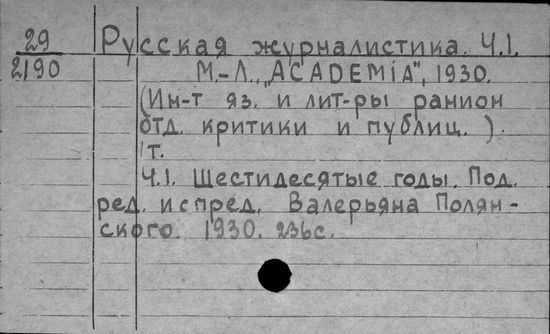 29
2190
Русская журналистика. Ч.1.
М.-Л., „ACADEMIA", 1930.
(Ин-т яз. и лит-ры ранион
отд. критики и публиц. ).
1т.
Ч.1. Шестидесятые годы. Под.
ред. и спред. Валерьяна Полян-
ского. 1930. 236с.